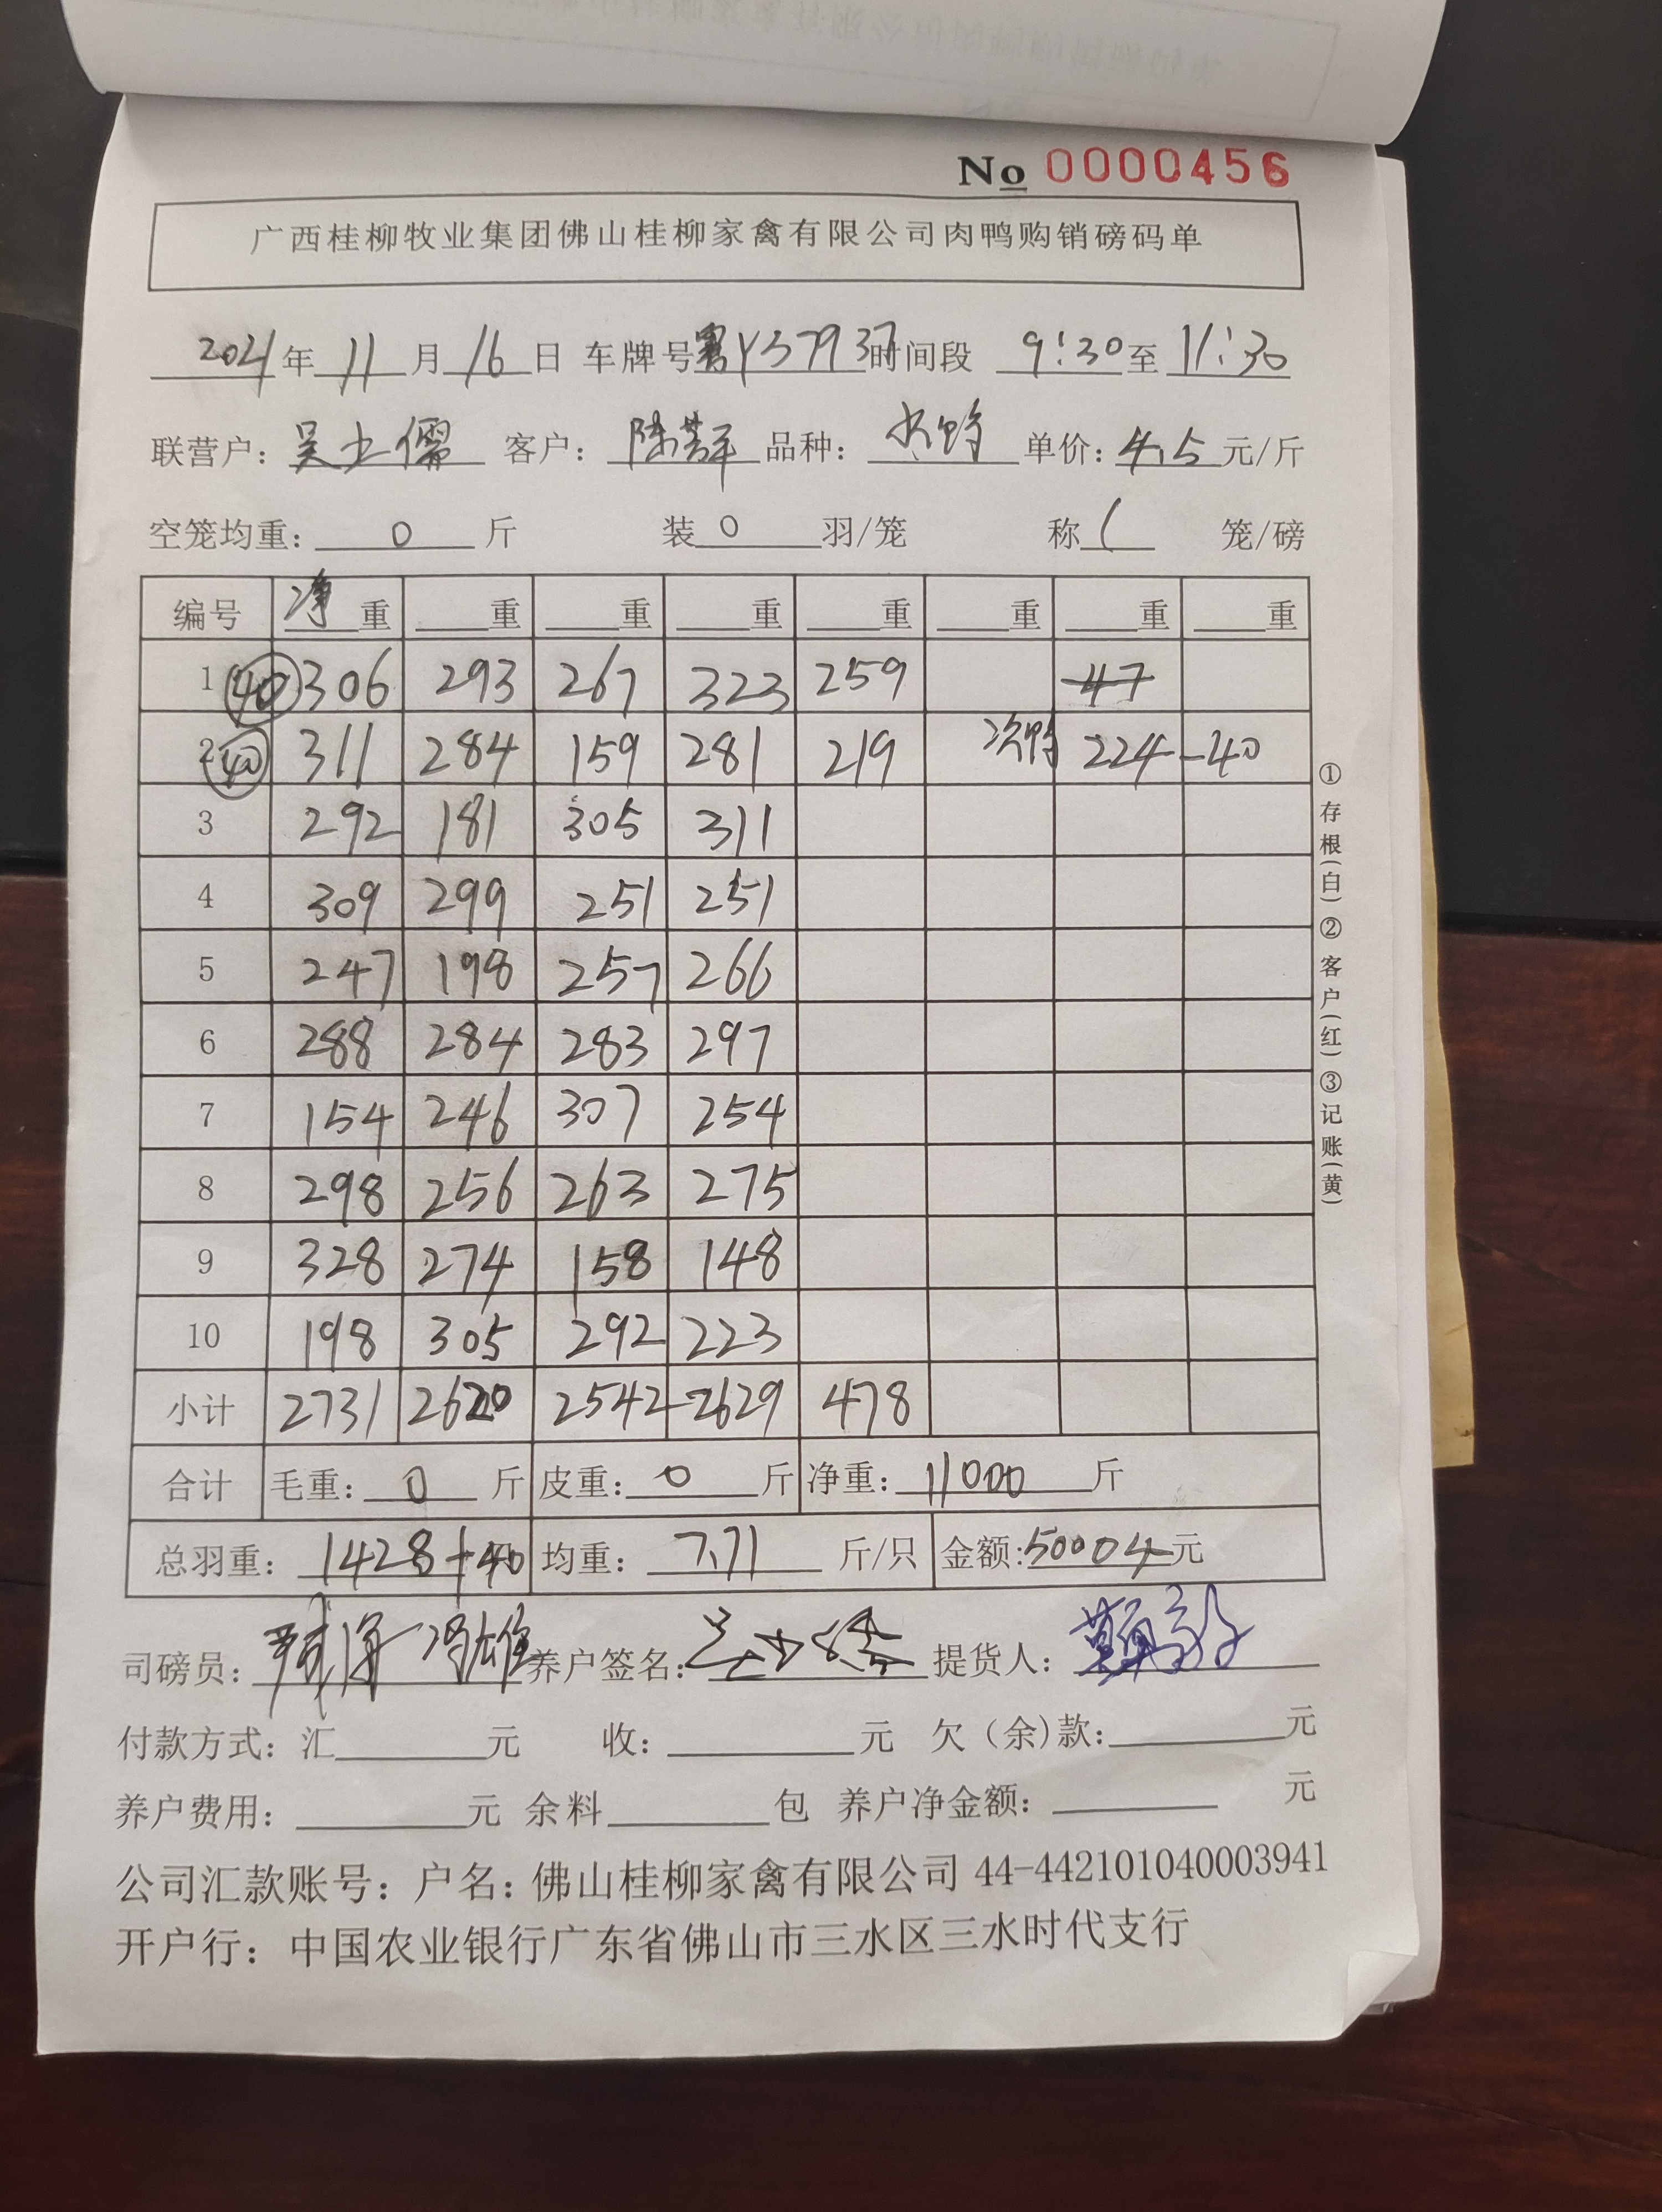 No 0000456
广西桂柳牧业集团佛山桂柳家禽有限公司肉鸭购销磅码单
2021年 11 月 16 日 车牌号 粤Y37937 时间段 9:30 至 11:30
联营户: 吴 儒 客户: 陈 品种: 单价: 4.5 元/斤
空笼均重: 0 斤 装 0 羽/笼 称 1 笼/磅
编号 净重 重 重 重 重 重 重 重
1 40 306 293 267 323 259 47
2 40 311 284 159 281 219 次鸭 224-40
3 292 181 305 311
4 309 299 251 251
5 247 198 257 266
6 288 284 283 297
7 154 246 307 254
8 298 256 263 275
9 328 274 158 148
10 198 305 292 223
小计 2731 2620 2542 2629 478
合计 毛重: 0 斤 皮重: 0 斤 净重: 11000 斤
总羽重: 1428+40 均重: 7.71 斤/只 金额: 50004 元
司磅员: 养户签名: 提货人:
付款方式: 汇 元 收: 元 欠(余)款: 元
养户费用: 元 余料 包 养户净金额: 元
公司汇款账号: 户名: 佛山桂柳家禽有限公司 44-442101040003941
开户行: 中国农业银行广东省佛山市三水区三水时代支行
①存根(白)②客户(红)③记账(黄)